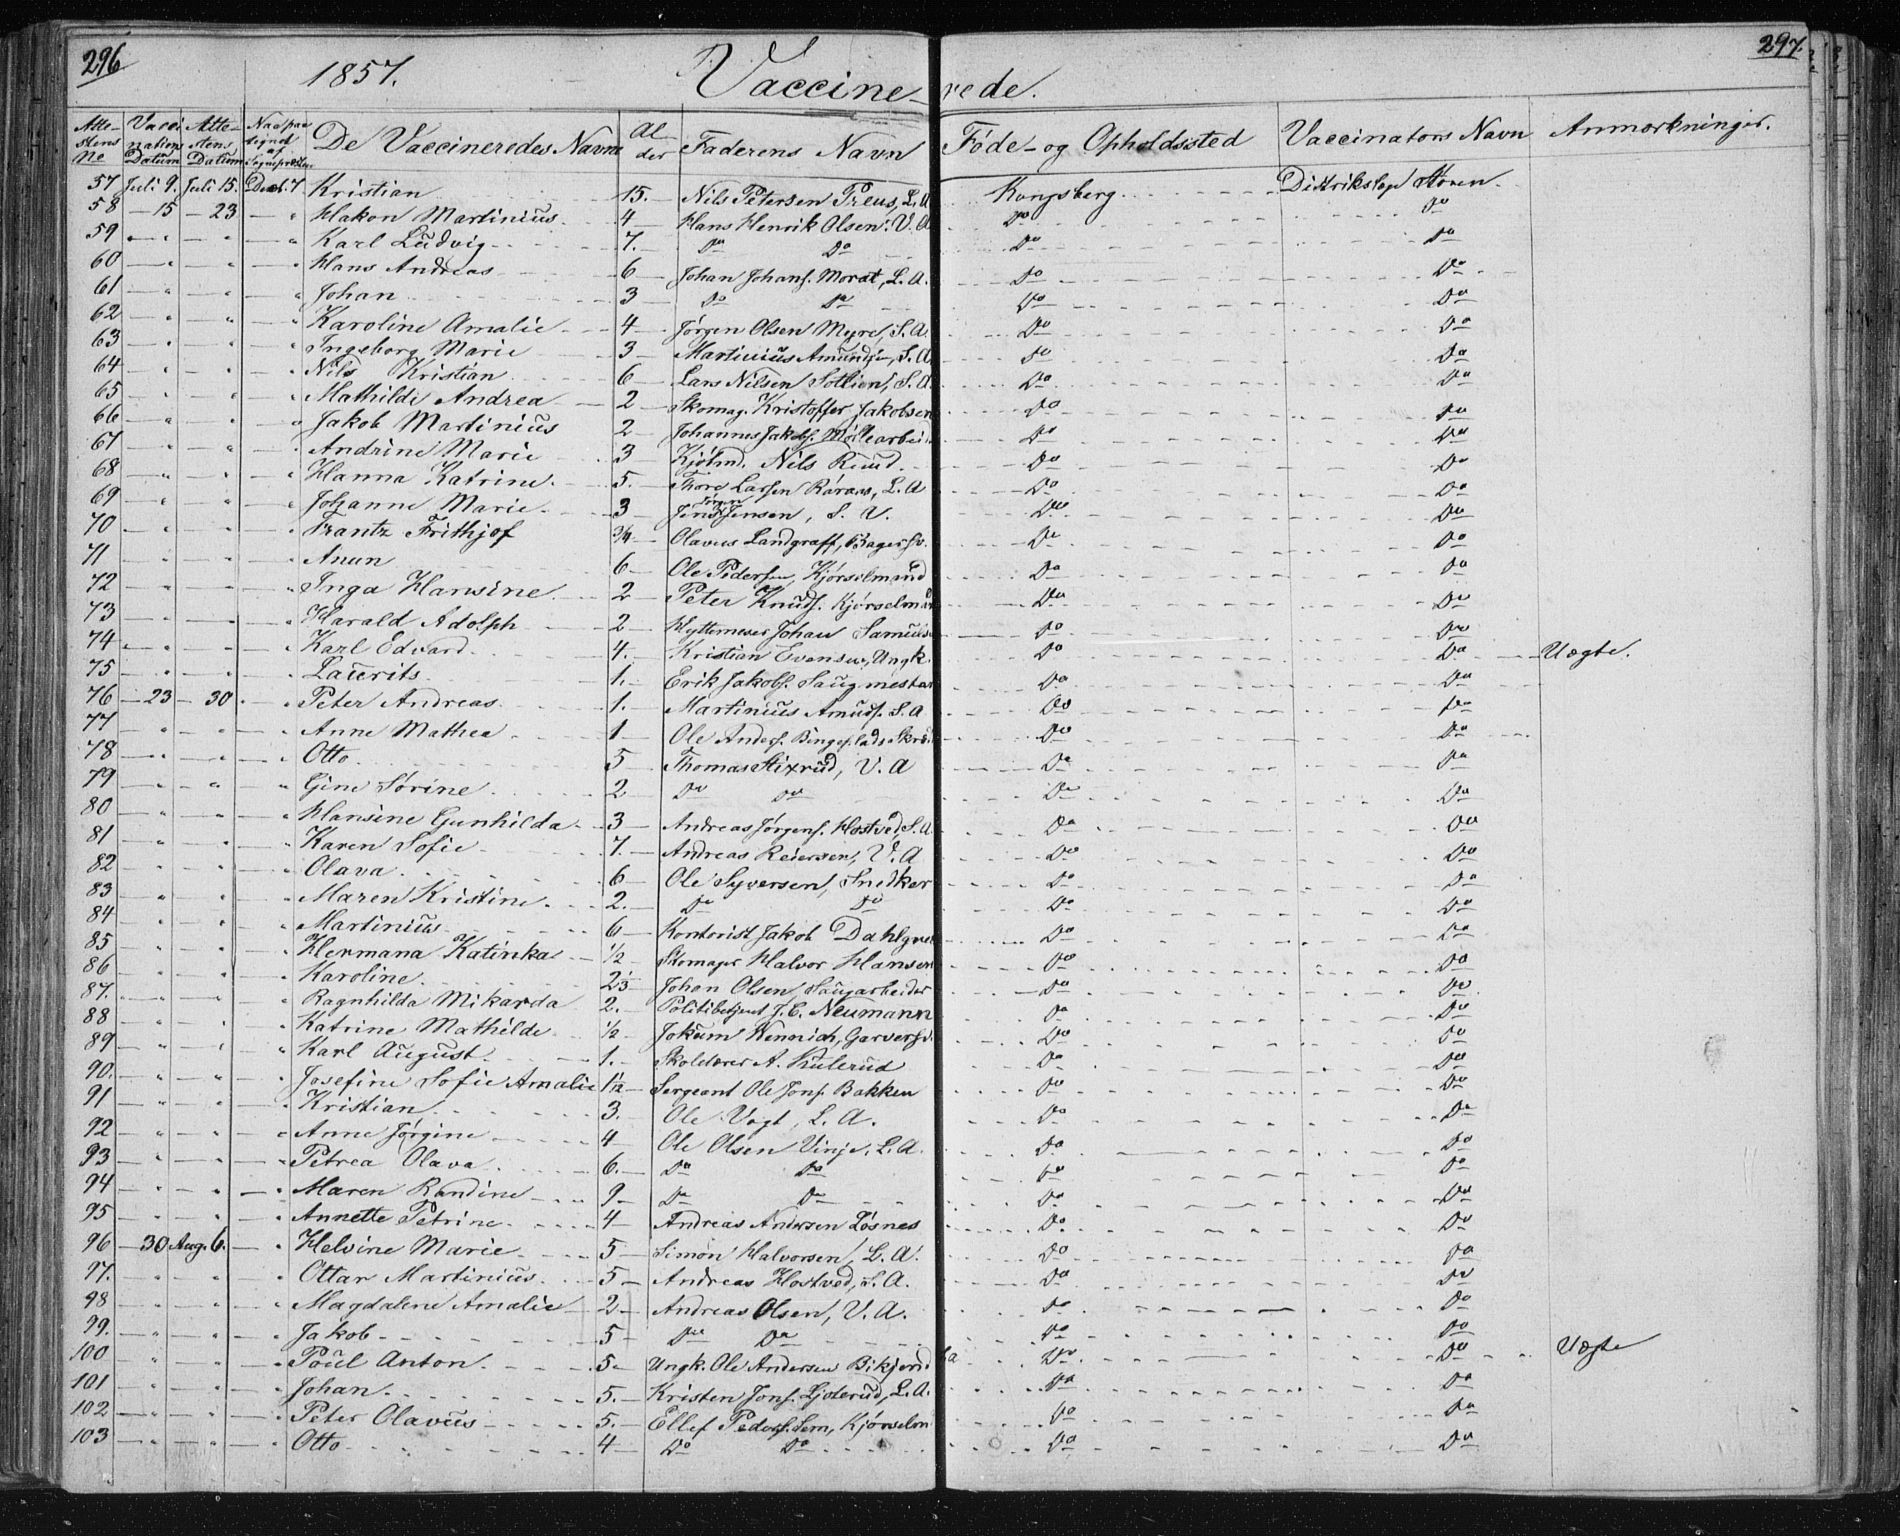 296
297.
1857.
Vaccine-rede.
Atte-stens No | Vacci nations Datum | Atte-stens Datum | Naar paategnet af Sognepræsten | De Vaccineredes Navne | Al-der | Faderens Navn | Føde- og Opholdssted | Vaccinators Navn | Anmærkninger.
57 Juli 9. Juli 15. Decb. 7 Kristian 15. Nils Petersen Preus, L.A Kongsberg Distriktslæge
58 15 23 " Hakon Martinius 4 Hans Henrik Olsen. V.A Do Do
59 " " " Karl Ludvig 7. Do Do Do Do
60 " " " Hans Andreas 6 Johan Johans. Morat, L.A. Do Do
61 " " " Johan 3 Do Do Do Do
62 " " " Karoline Amalie 4 Jørgen Olsen Myre, S.A. Do Do
63 " " " Ingeborg Marie 3 Martinius Amundsen, S.A Do Do
64 " " " Nils Kristian 6 Lars Nilsen Sollien, S.A. Do Do
65 " " " Mathilde Andrea 2 Skomag. Kristoffer Jakobsen Do Do
66 " " " Jakob Martinius 2 Johannes Jakobs. Møllearbei Do Do
67 " " " Andrine Marie 3 Kjølmd. Nils Ruud. Do Do
68 " " " Hanna Katrine. 5. Thore Larsen Råraas, L.A Do Do
69 " " " Johanne Marie 3 Jens Jørgen Jensen, S.V. Do Do
70 " " " Frantz Frithjof 3/4 Olavus Landgraff, Bagersv. Do Do
71 " " " Anun 6 Ole Pedersen, Kjørselmand Do Do
72 " " " Inga Hansine 2 Peter Knuds. Kjørselman Do Do
73 " " " Harald Adolph 2 Hyttemester Johan Samuels Do Do
74 " " " Karl Edvard 4. Kristian Evensen, Ungk. Do Do Uægte.
75 " " " Laurits 1. Erik Jakobs. Saugmester Do Do
76 23 30 " Peter Andreas 1. Martinius Amuds. S.A Do Do
77 " " " Anne Mathea 1 Ole Anders. Bingeplads Do Do
78 " " " Otto 5 Thomas Stixrud, V.A Do Do
79 " " " Gine Sørine 2 Do Do Do Do
80 " " " Hansine Gunhilda 3 Andreas Jørgens. Hostved, S.A Do Do
81 " " " Karen Sofie 7. Andreas Reiersen, V.A Do Do
82 " " " Olava 6 Ole Syversen, Snedker Do Do
83 " " " Maren Kristine 2. Do Do Do Do
84 " " " Martinius 6 Kontorist Jakob Dahlgre Do Do
85 " " " Hermana Katinka 1/2 Skomager Halvor Hansen Do Do
86 " " " Karoline 2 1/3 Johan Olsen, Saugarbeider Do Do
87. " " " Ragnhilda Mikarda 2. Politibetjent J.C. Neumann Do Do
88 " " " Katrine Mathilde 1/2 Jokum Hennich, Garversv. Do Do
89 " " " Karl August 1. Skolelærer A. Kulerud Do Do
90. " " " Josefine Sofie Amalie 1/12 Sergeant Ole Jons. Bakken Do Do
91 " " " Kristian 3. Ole Vogt, L.A. Do Do
92 " " " Anne Jørgine 4 Ole Olsen Vinje, L.A. Do Do
93 " " " Petrea Olava 6. Do Do Do Do
94 " " " Maren Randine 9 Do Do Do Do
95 " " " Annette Petrine 4 Andreas Andersen Løsnes Do Do
96 30 Aug. 6. " Helvine Marie 5 Simon Halvorsen, L.A. Do Do
97. " " " Ottar Martinius 5 Andreas Hostved, S.A. Do Do
98 " " " Magdalene Amalie 2 Andreas Olsen, V.A. Do Do
99. " " " Jakob 5 Do Do Do Do
100 " " " Poul Anton 5. Ungk. Ole Andersen Do Do Uægte
101 " " " Johan 5. Kristen Jons. Ljoterud, L.A. Do Do
102 " " " Peter Olavus 5. Ellef Peders. Sem, Kjørselm Do Do
103 " " " Otto 4 Do Do Do Do